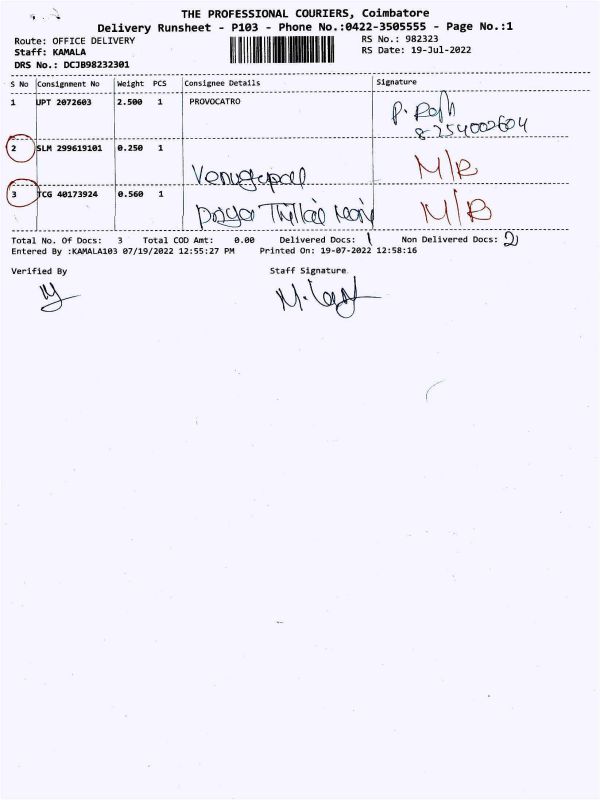 THE PROFESSIONAL COURIERS, Coimbatore
Delivery Runsheet - P103 - Phone No.:0422-3505555 - Page No.:1
Route: OFFICE DELIVERY RS No.: 982323
Staff: KAMALA RS Date: 19-Jul-2022
DRS No.: DCJB98232301
S No Consignment No Weight PCS Consignee Details Signature
1 UPT 2072603 2.500 1 PROVOCATRO
8254002604
2 SLM 299619101 0.250 1 M/B
Venugopal
3 TCG 40173924 0.560 1 M/B
Total No. Of Docs: 3 Total COD Amt: 0.00 Delivered Docs: 1 Non Delivered Docs: 2
Entered By :KAMALA103 07/19/2022 12:55:27 PM Printed On: 19-07-2022 12:58:16
Verified By Staff Signature